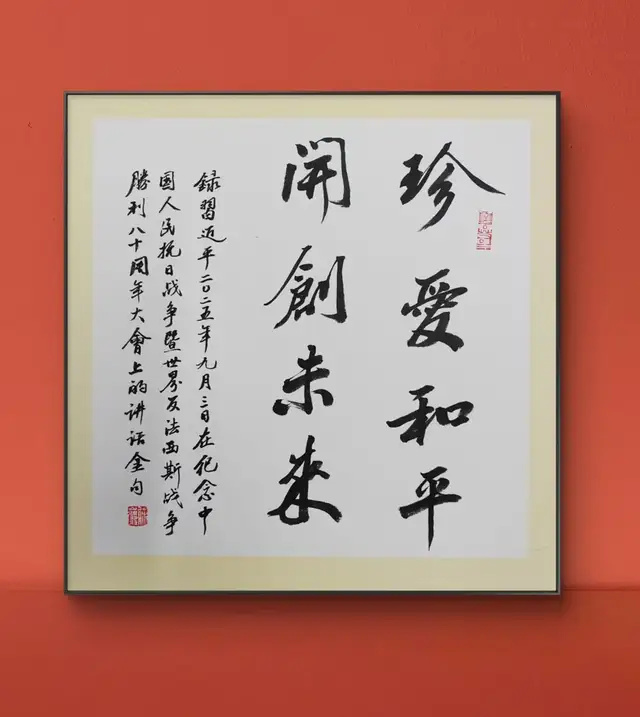 珍愛和平
開創未來
録習近平二〇二五年九月三日在纪念中
国人民抗日战争暨世界反法西斯战争
勝利八十周年大會上的讲话金句